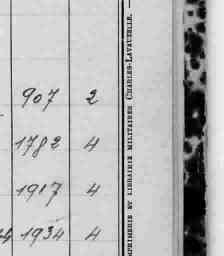 907 2
1782 4
1917 4
4 1934 4
MPRIMERIE ET LIBRAIRIE MILITAIRES CHARLES-LAVAUZELLE. —